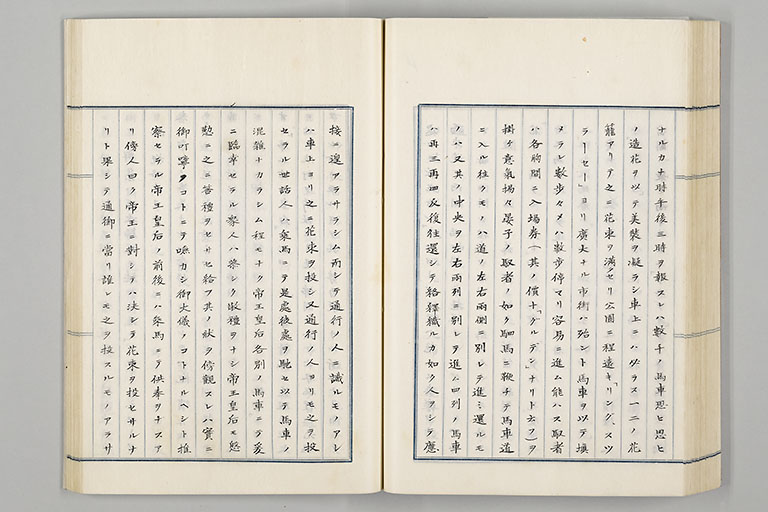 ナルカナ時午後三時ヲ報スレハ數千ノ馬車思ヒ思ヒ
ノ造花ヲ以テ美裝ヲ凝ラシ車上ニハ必ラス一二ノ花
籠アリテ之ニ花束ヲ滿タセリ公園ニ程遠キ「リングスツ
ラーセー」ヨリ廣大ナル市街ハ殆ント馬車ヲ以テ塡
メラレ數步々メハ數步停マリ容易ニ進ム能ハス馭者
ハ各胸間ニ入場券(其ノ價十「グルデン」ナリト云フ)ヲ
掛ケ意氣揚々晏子ノ馭者ノ如ク駟馬ニ鞭チテ馬車道
ニ入ル往クモノハ道ノ左右兩側ニ別レテ進ミ還ルモ
ノハ又其ノ中央ヲ左右兩列ニ別レテ進ム四列ノ馬車
ハ再三再四反復往還シテ絡繹織ルカ如ク人ヲシテ應
接ニ遑アラサラシム而シテ通行ノ人ニ識ルモノアレ
ハ車上ヨリ之ニ花束ヲ投シ又通行ノ人ヨリモ之ヲ投
セラル世話人ハ乘馬ニテ是處彼處ヲ馳セ以テ馬車ノ
混雜ナカラシム程モナク帝王皇后各別ノ馬車ニテ爰
ニ臨幸セラル衆人ハ恭シク敬禮ヲナシ帝王皇后モ慇
懃ニ之ニ答禮ヲセサセ給フ其ノ狀ヲ傍觀スレハ實ニ
御叮寧ノコトニテ嘸カシ御大儀ノコトナルヘシト推
察セラル帝王皇后ノ前後ニハ乘馬ニテ供奉ヲナスア
リ傍人曰ク帝王ニ對シテハ決シテ花束ヲ投セサルナ
リト果シテ通御ニ當リ誰レモ之ヲ投スルモノアラサ